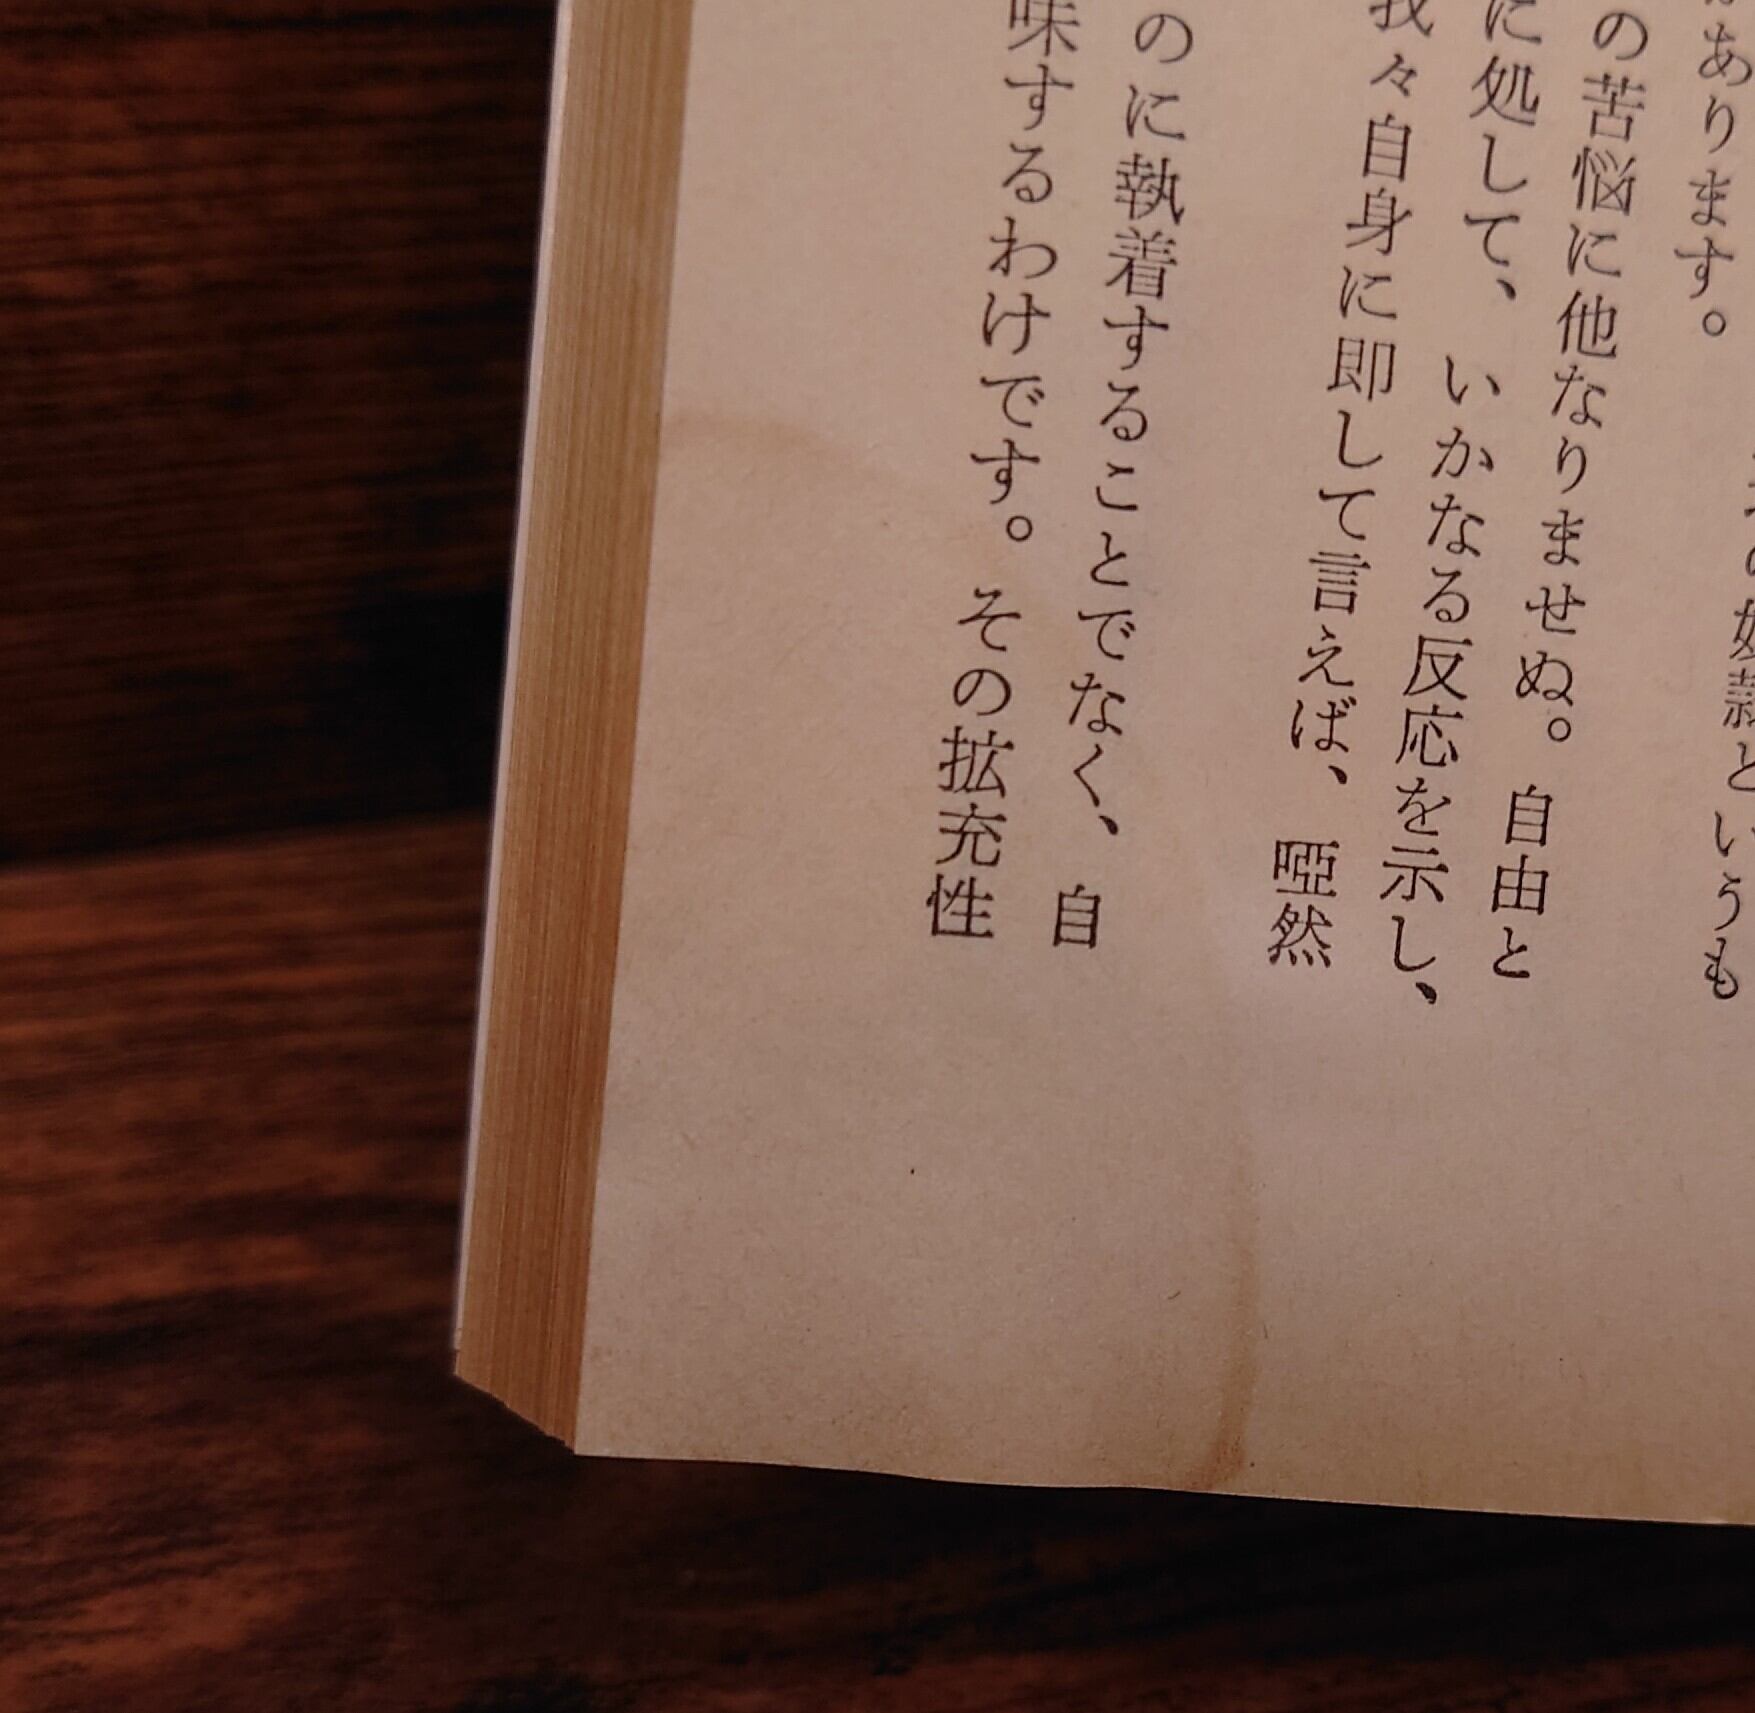 あります。
奴隷というも
の苦悩に他なりませぬ。自由と
に処して、いかなる反応を示し、
我々自身に即して言えば、啞然
のに執着することでなく、自
味するわけです。その拡充性